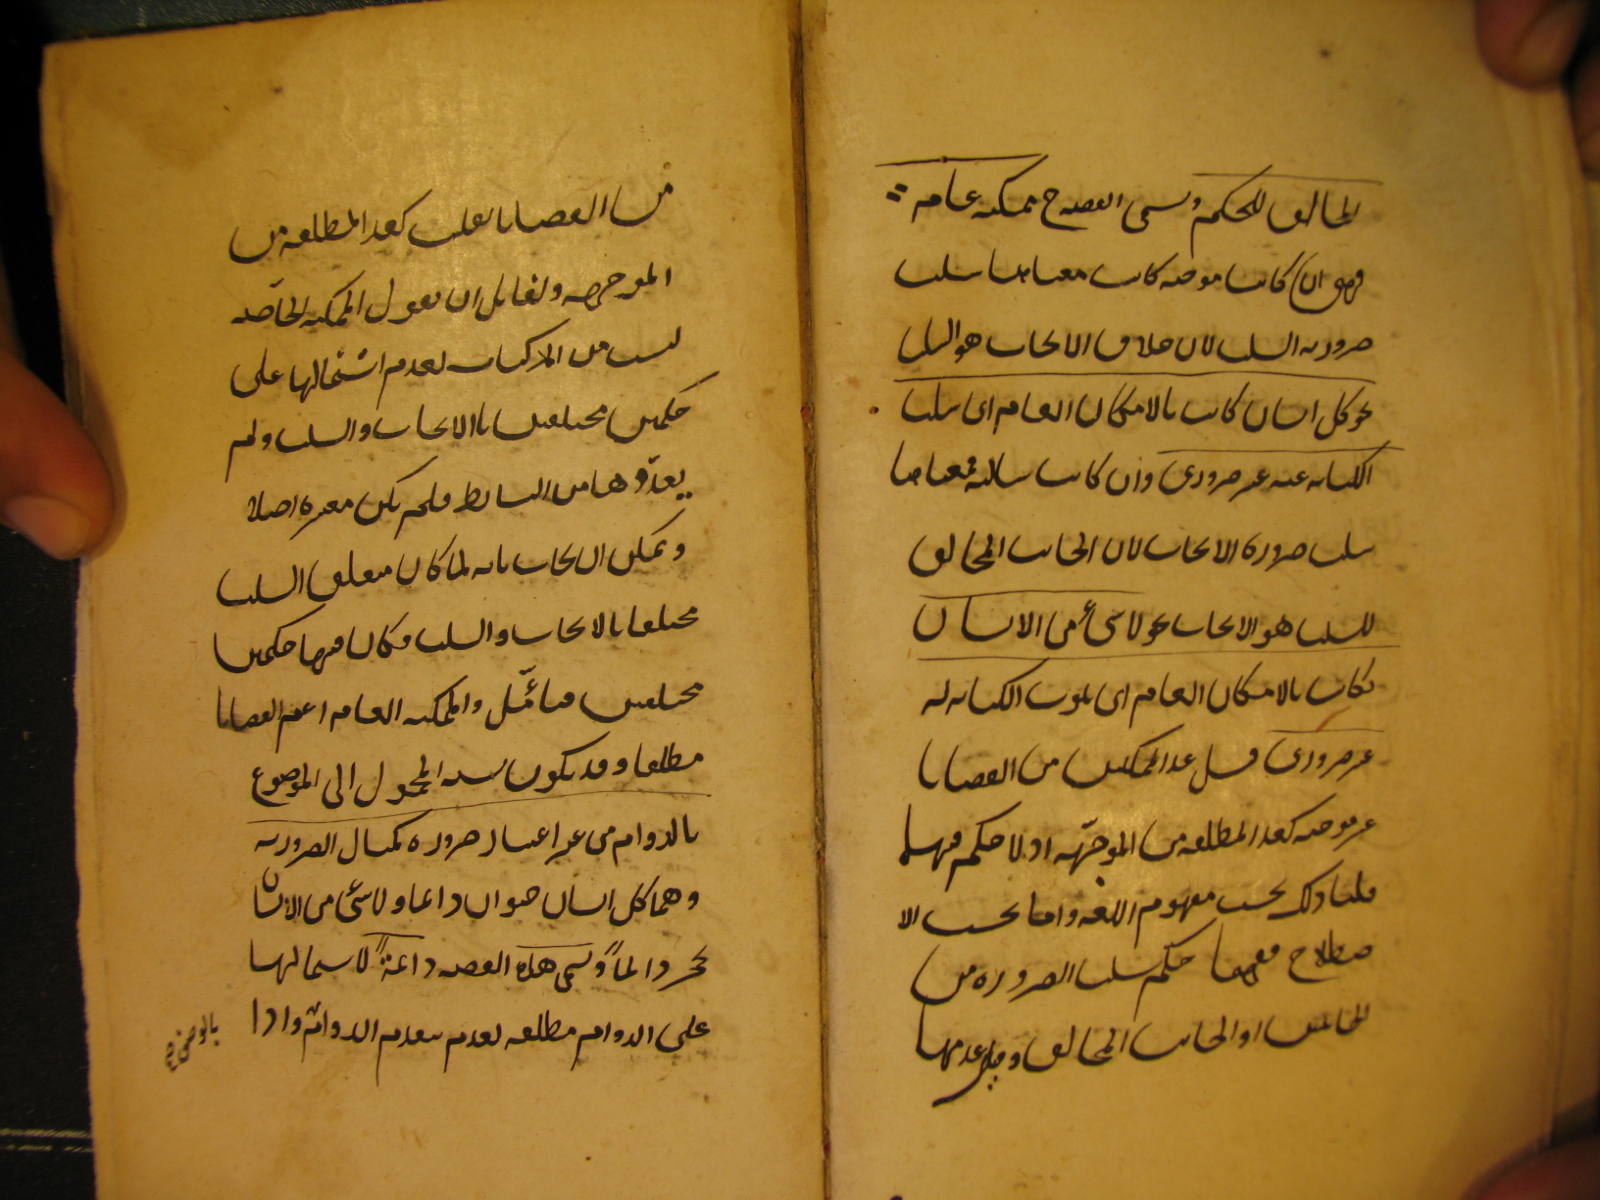 المخالف للحكم وتسمى القضية ح ممكنة عامة
فهى ان كانت موجبة كانت معناها سلب
ضرورية السلب لان خلاف الايجاب هو السلب
نحو كل انسان كاتب بالامكان العام اى سلب
الكتابة عنه غير ضرورى وان كانت سالبة فمعناها
سلب ضرورة الايجاب لان الجانب المخالف
للسلب هو الايجاب نحو لا شئ من الانسان
بكاتب بالامكان العام اى ثبوت الكتابة له
غير ضرورى قيل عد الممكنتين من القضايا
غير موجه كعد المطلقة من الموجّهة اذ لا حكم فيهما
قلنا ذلك بحسب مفهوم اللغة واما بحسب الا
صطلاح ففيهما حكم بسلب الضرورة من
الجانبين او الجانب المخالف وقيل عدمها
من القضايا تغليب كعد المطلقة من
الموجهة ولقائل ان يقول الممكنة الخاصّة
ليست من المركبات لعدم اشتمالها على
حكمين مختلفين بالايجاب والسلب ولم
يعدّوها من البسائط فلم يكن معبرة اصلا
ويمكن ان يجاب بانه لما كان متعلق السلب
مختلفا بالايجاب والسلب فكان فيها حكمين
مختلفين فتأمّل والممكنة العامة اعم القضايا
مطلقا وقد يكون نسبة المحمول الى الموضوع
بالدوام من غير اعتبار ضرورة كمثال الضرورية
وهما كل انسان حيوان دائما ولا شئ من الانسان
بحجر دائماً وتسمى هذه القضية دائمةً لاشتمالها
على الدوام مطلقة لعدم تقدم الدوام واذا
بالوصفى